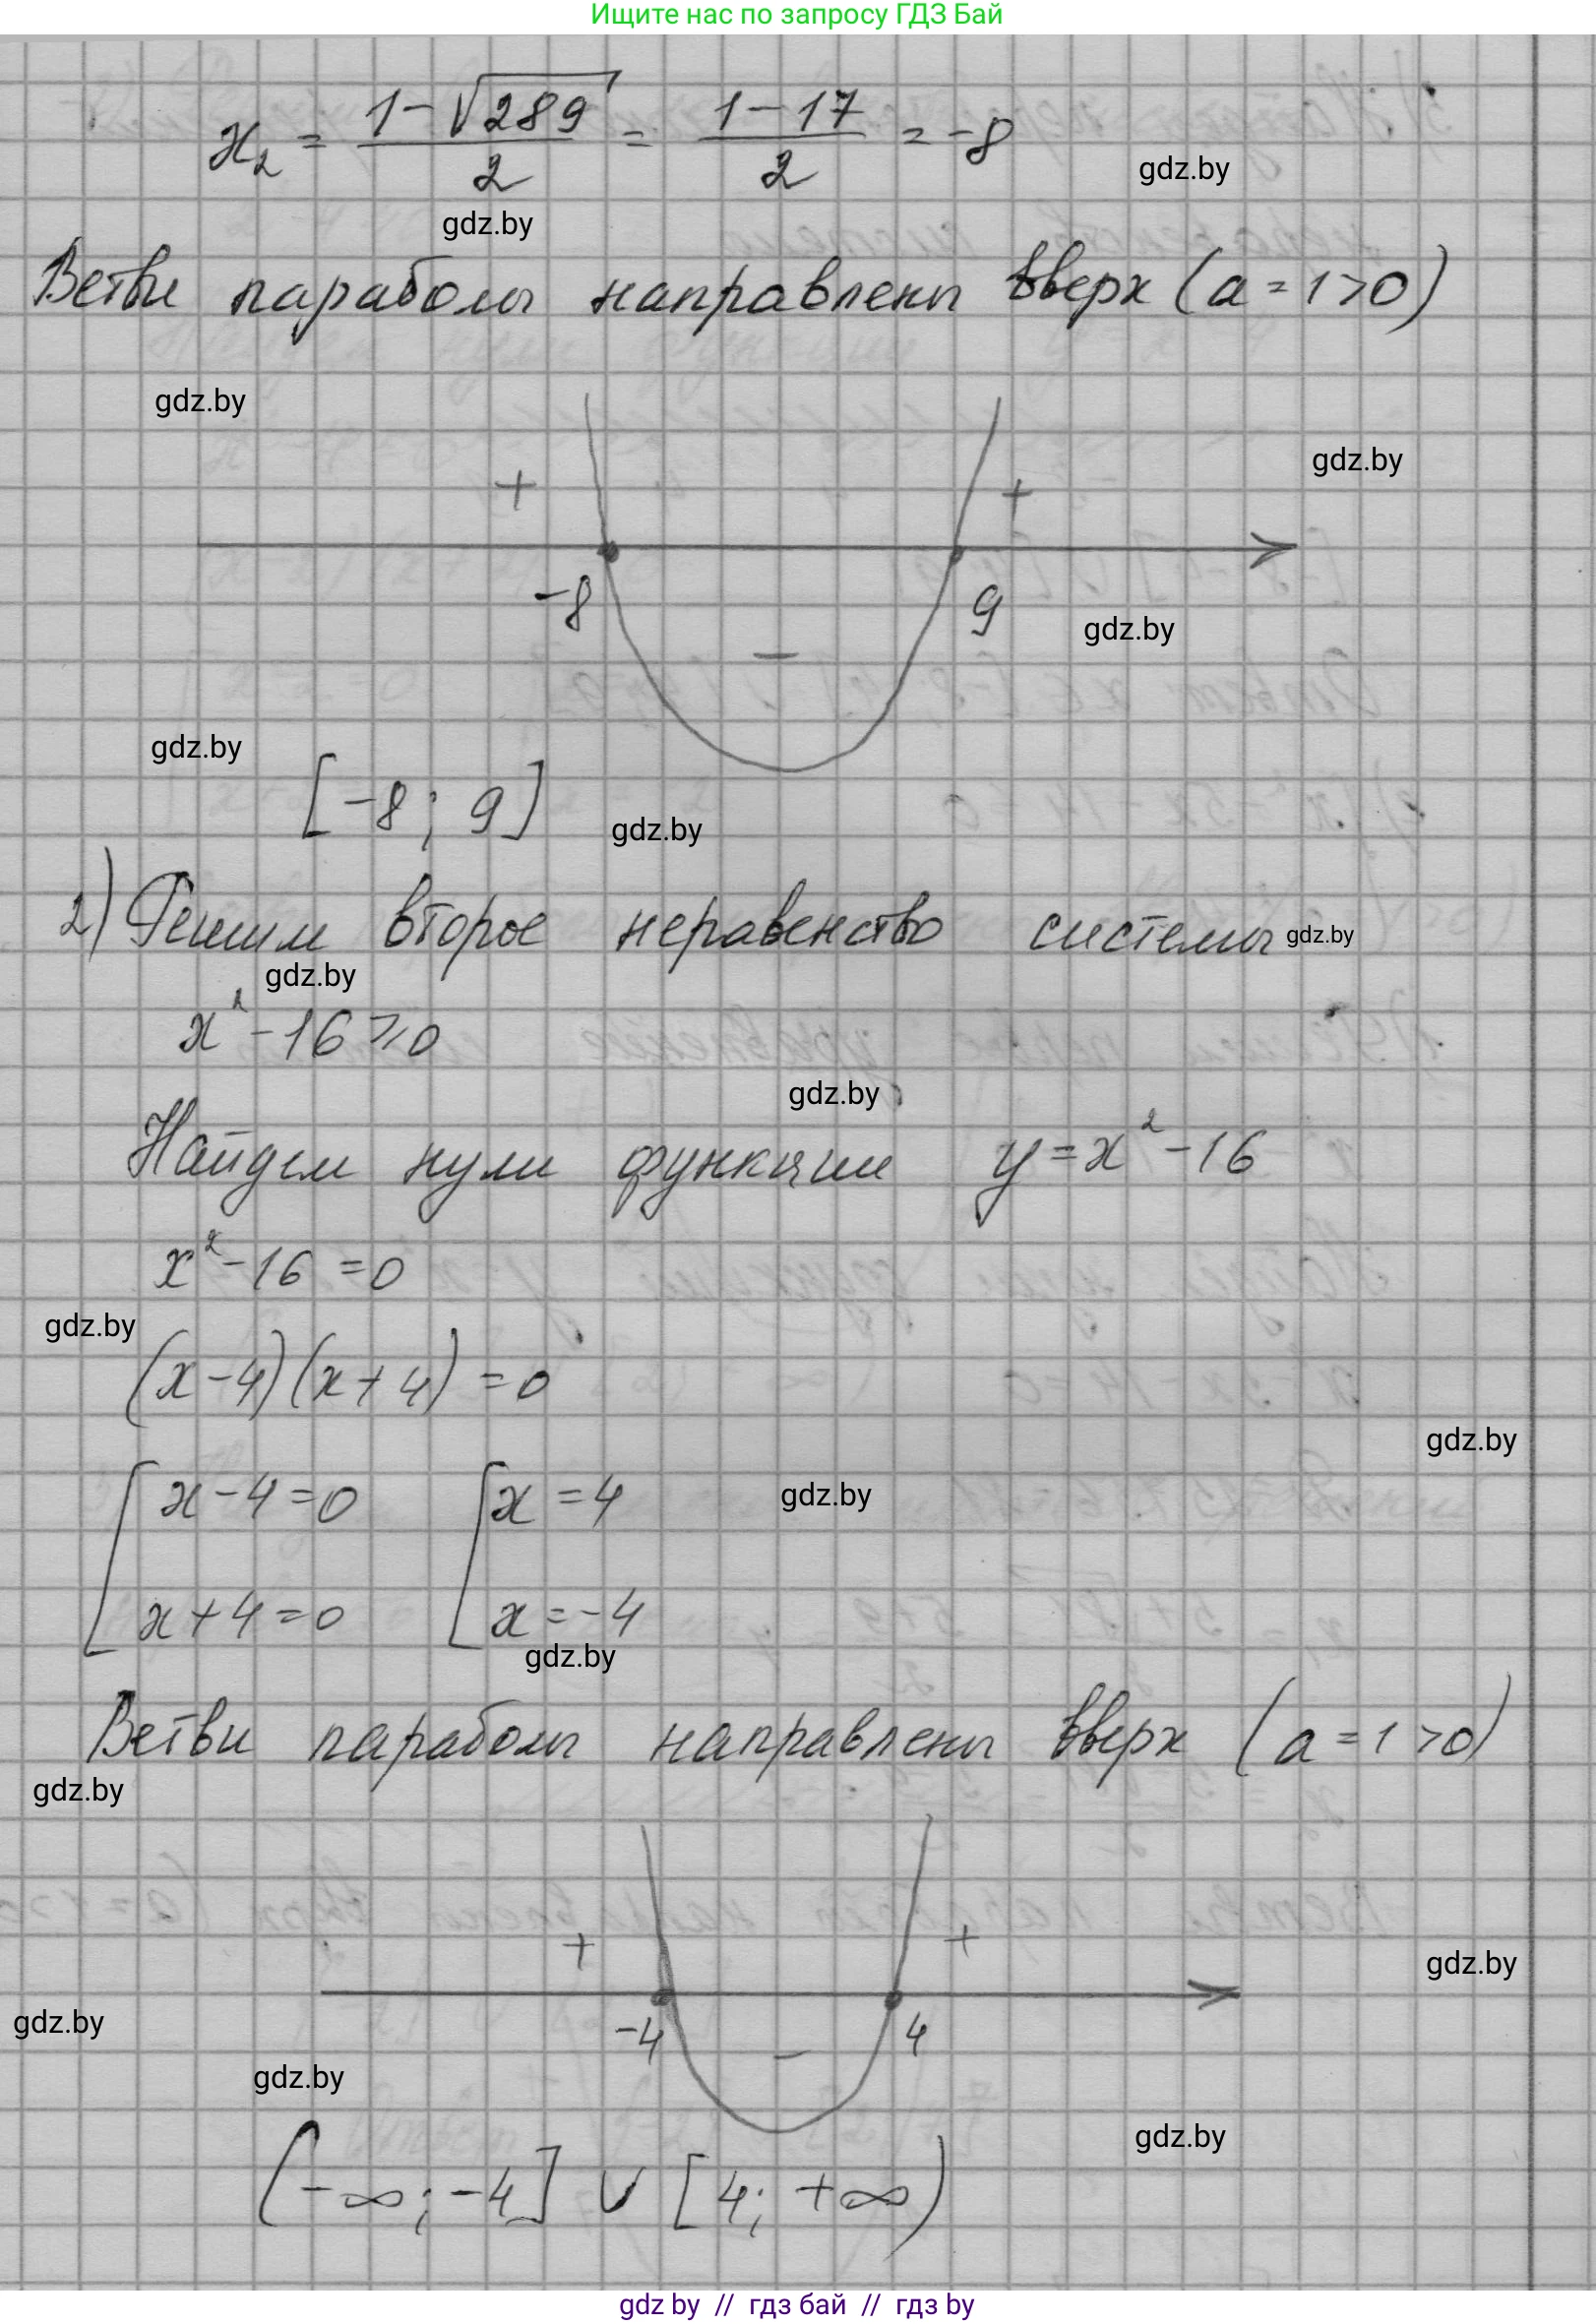 Ищите нас по запросу ГДЗ Бай
x₂ = (1-√289)/2 = (1-17)/2 = -8
gdz.by
gdz.by
Ветви параболы направлены вверх (a = 1 > 0)
gdz.by
gdz.by
+ +
-8 9
gdz.by
-
gdz.by
[-8; 9]
gdz.by
2) Решим второе неравенство системы gdz.by
gdz.by
x² - 16 ⩾ 0
gdz.by
Найдем нули функции y = x² - 16
x² - 16 = 0
gdz.by
(x - 4)(x + 4) = 0
gdz.by
[x - 4 = 0 [x = 4
gdz.by
x + 4 = 0 x = -4
gdz.by
Ветви параболы направлены вверх (a = 1 > 0)
gdz.by
+ +
gdz.by
gdz.by
-4 - 4
gdz.by
gdz.by
(-∞; -4] ∪ [4; +∞)
gdz by // гдз бай // гдз by